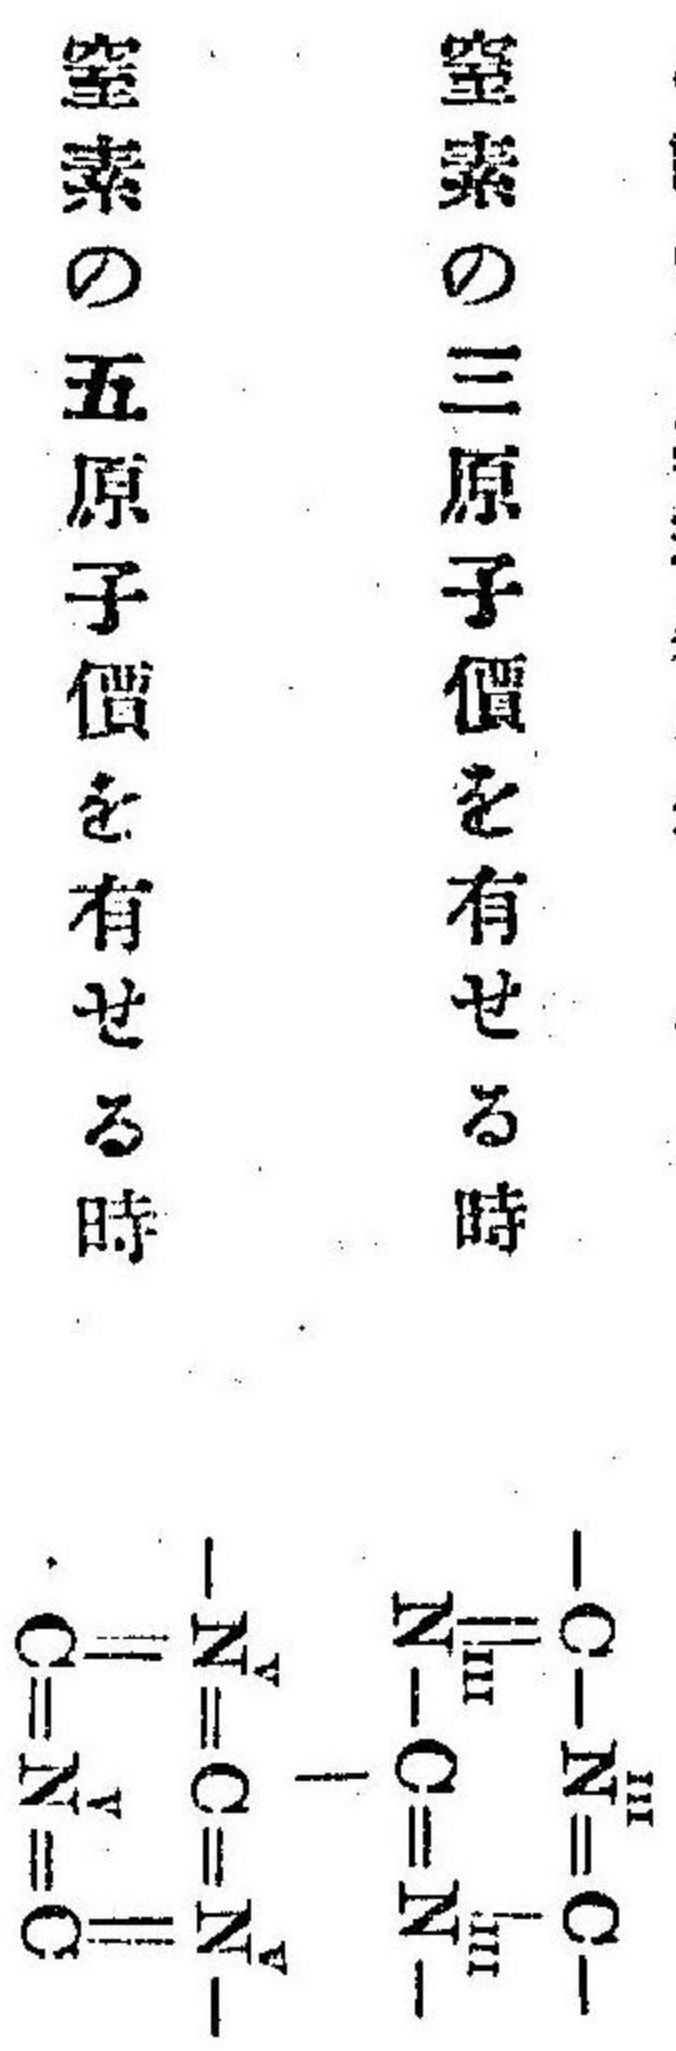 窒素の三原子價を有せる時
—C—Nᴵᴵᴵ=C—
Nᴵᴵᴵ—C=Nᴵᴵᴵ—
窒素の五原子價を有せる時
—Nⱽ=C=Nⱽ—
C=Nⱽ=C